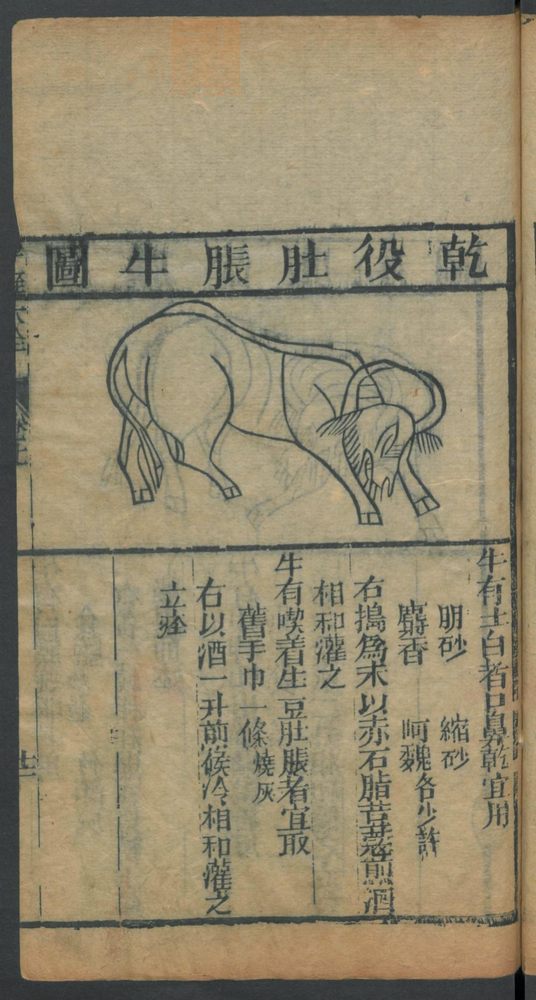 乾役肚脹牛圖
牛有士白者口鼻乾宜用
明砂 縮砂
麝香 阿魏各少許
右搗為末以赤石脂苦蔘煎酒
相和灌之
牛有喫着生豆肚脹者宜取
舊手巾一條燒灰
右以酒一升煎候冷相和灌之
立痊
廿一